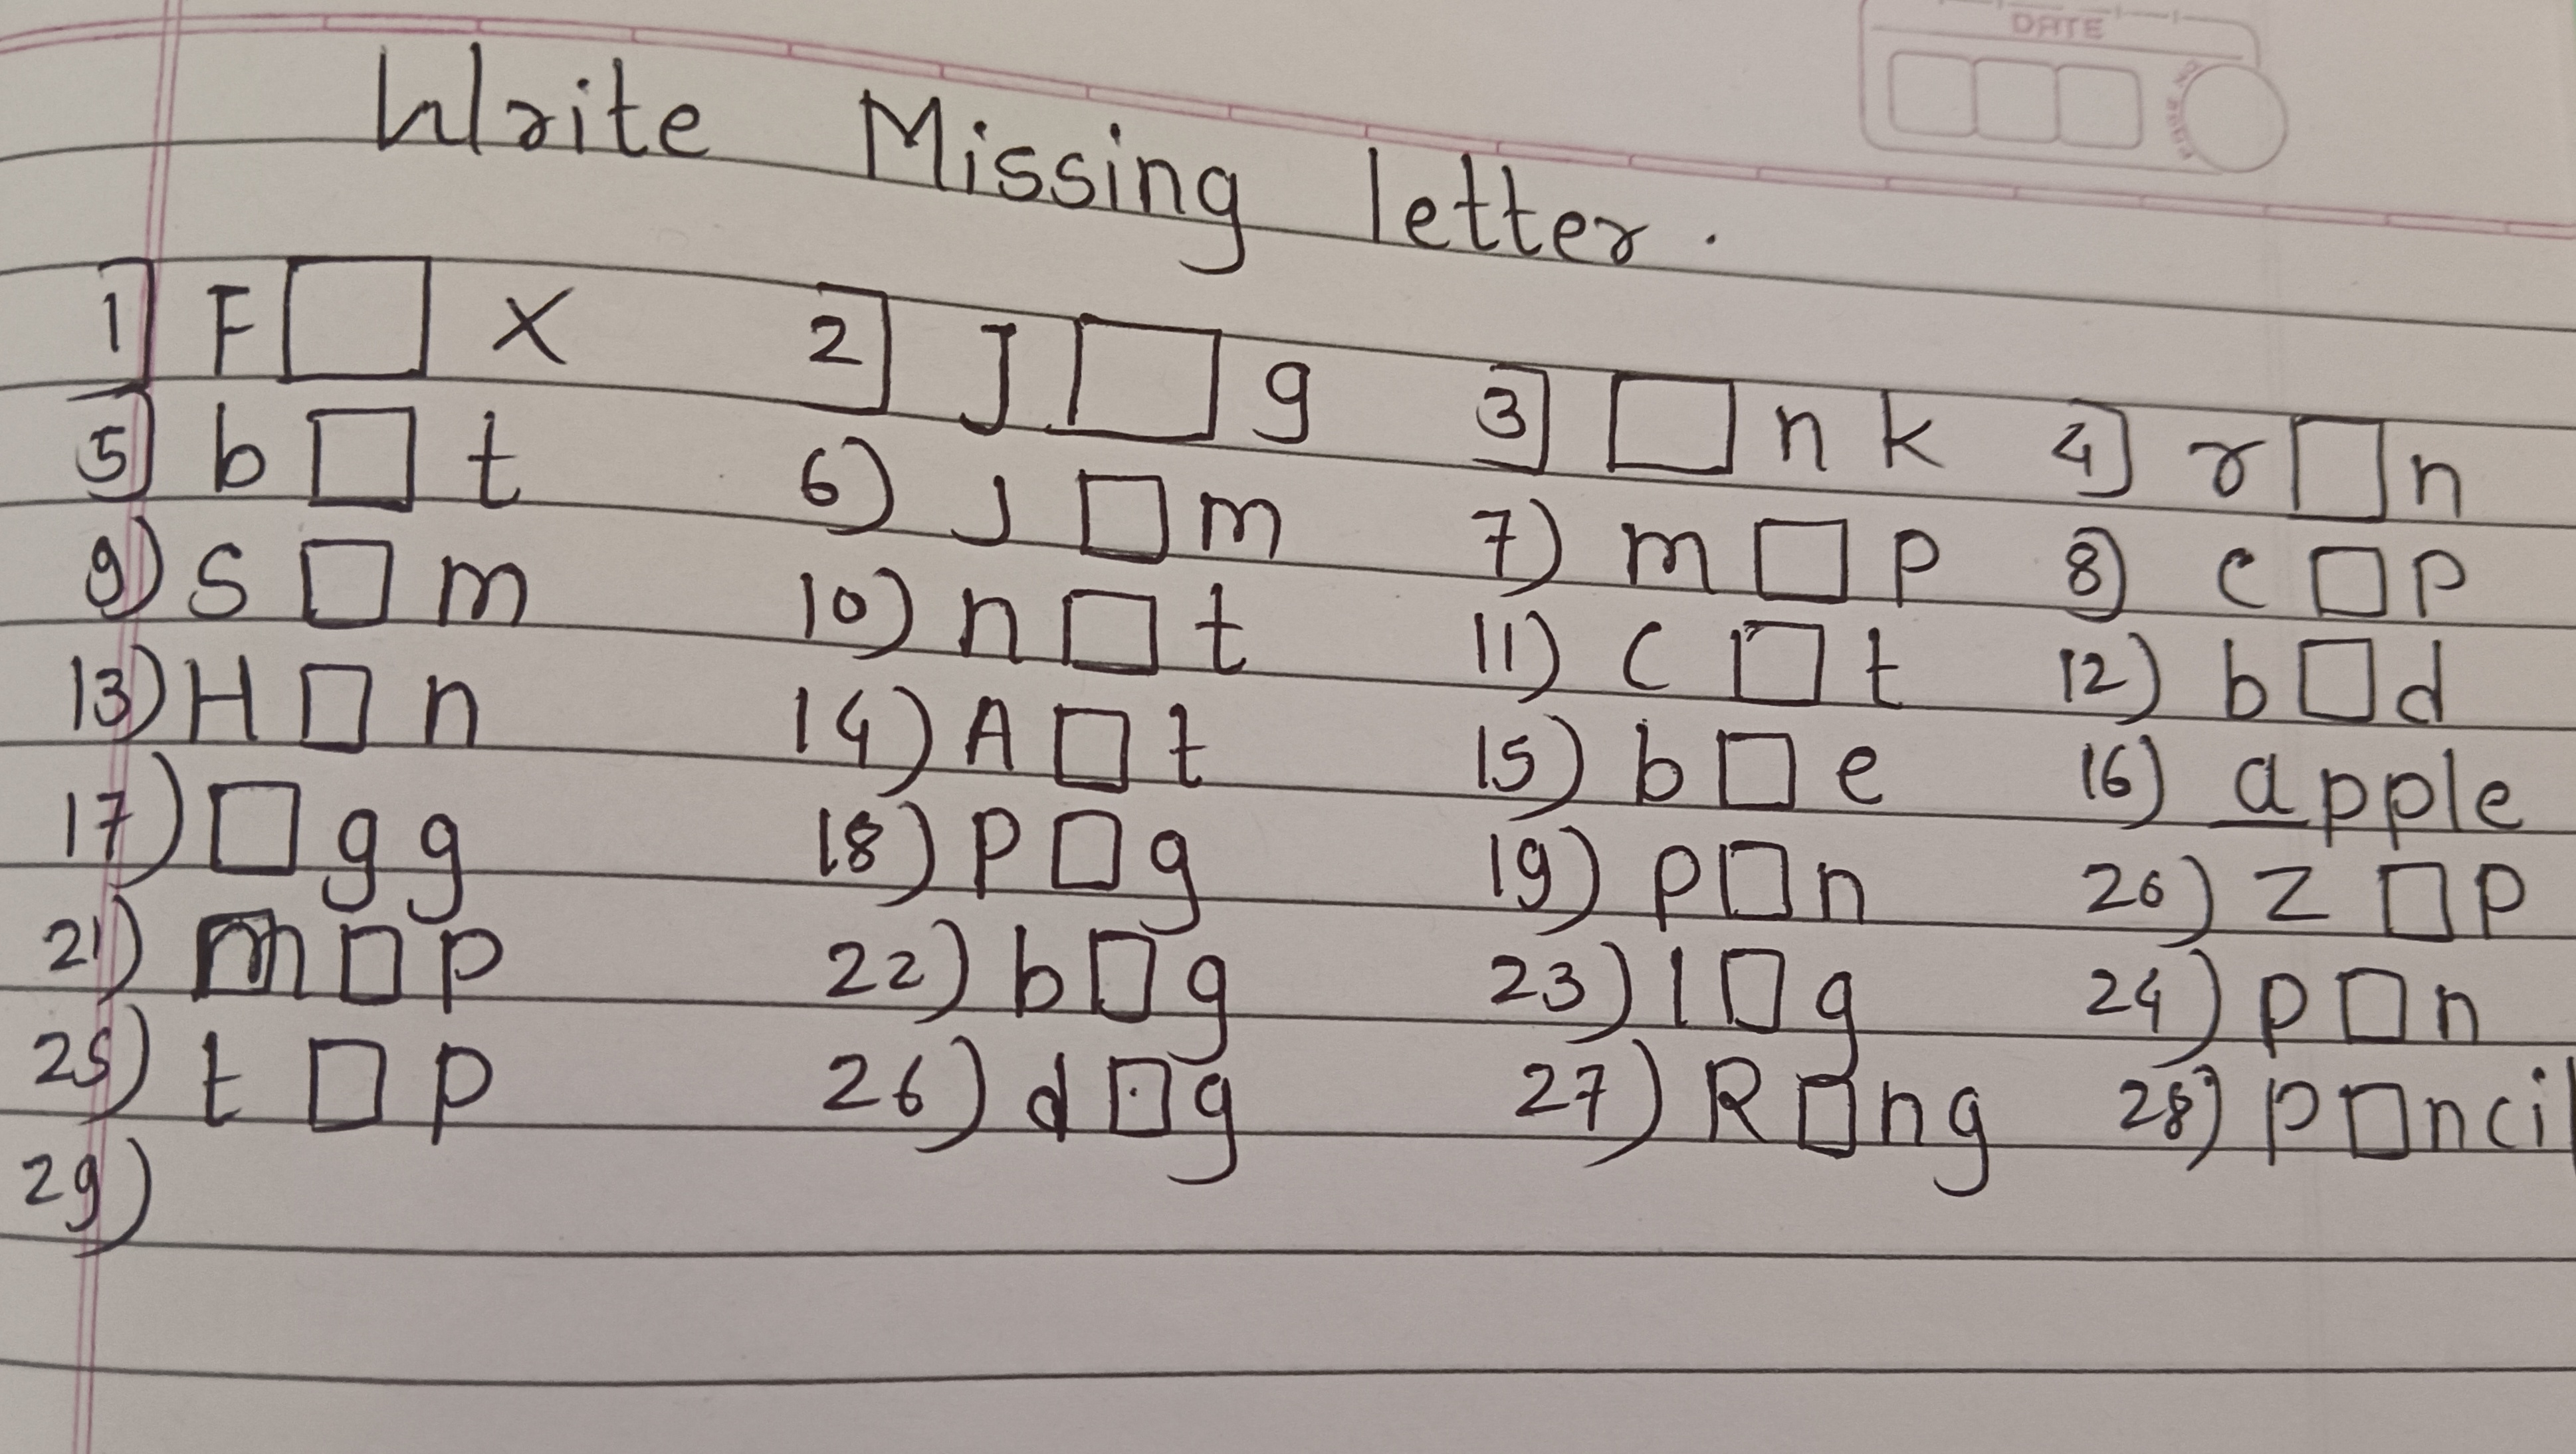 DATE
Write Missing letter.
1] F□x 2] J□g 3] □nk 4] r□n
5] b□t 6) J□m 7) m□p 8) c□p
9) S□m 10) n□t 11) c□t 12) b□d
13) H□n 14) A□t 15) b□e 16) apple
17) □gg 18) p□g 19) p□n 20) z□p
21) m□p 22) b□g 23) l□g 24) p□n
25) t□p 26) d□g 27) R□ng 28) p□ncil
29)